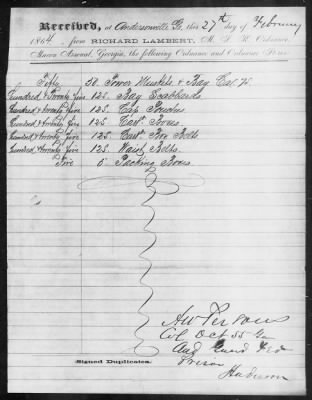 Received, at Andersonville Ga, this 27th day of February
1864, from RICHARD LAMBERT, M. S. K. Ordnance,
Macon Arsenal, Georgia, the following Ordnance and Ordnance Stores
Fifty 50 Muskets & Bay Cal.
Hundred & twenty five 125 Bay Scabbards
Hundred & twenty five 125 Cap Pouches
Hundred & twenty five 125 Cart. Boxes
Hundred & twenty five 125 Cart. Box Belts
Hundred & twenty five 125 Waist Belts
Five 5 Packing Boxes
A W Persons
Col 55 Ga
Prison
Anderson
Signed Duplicates.